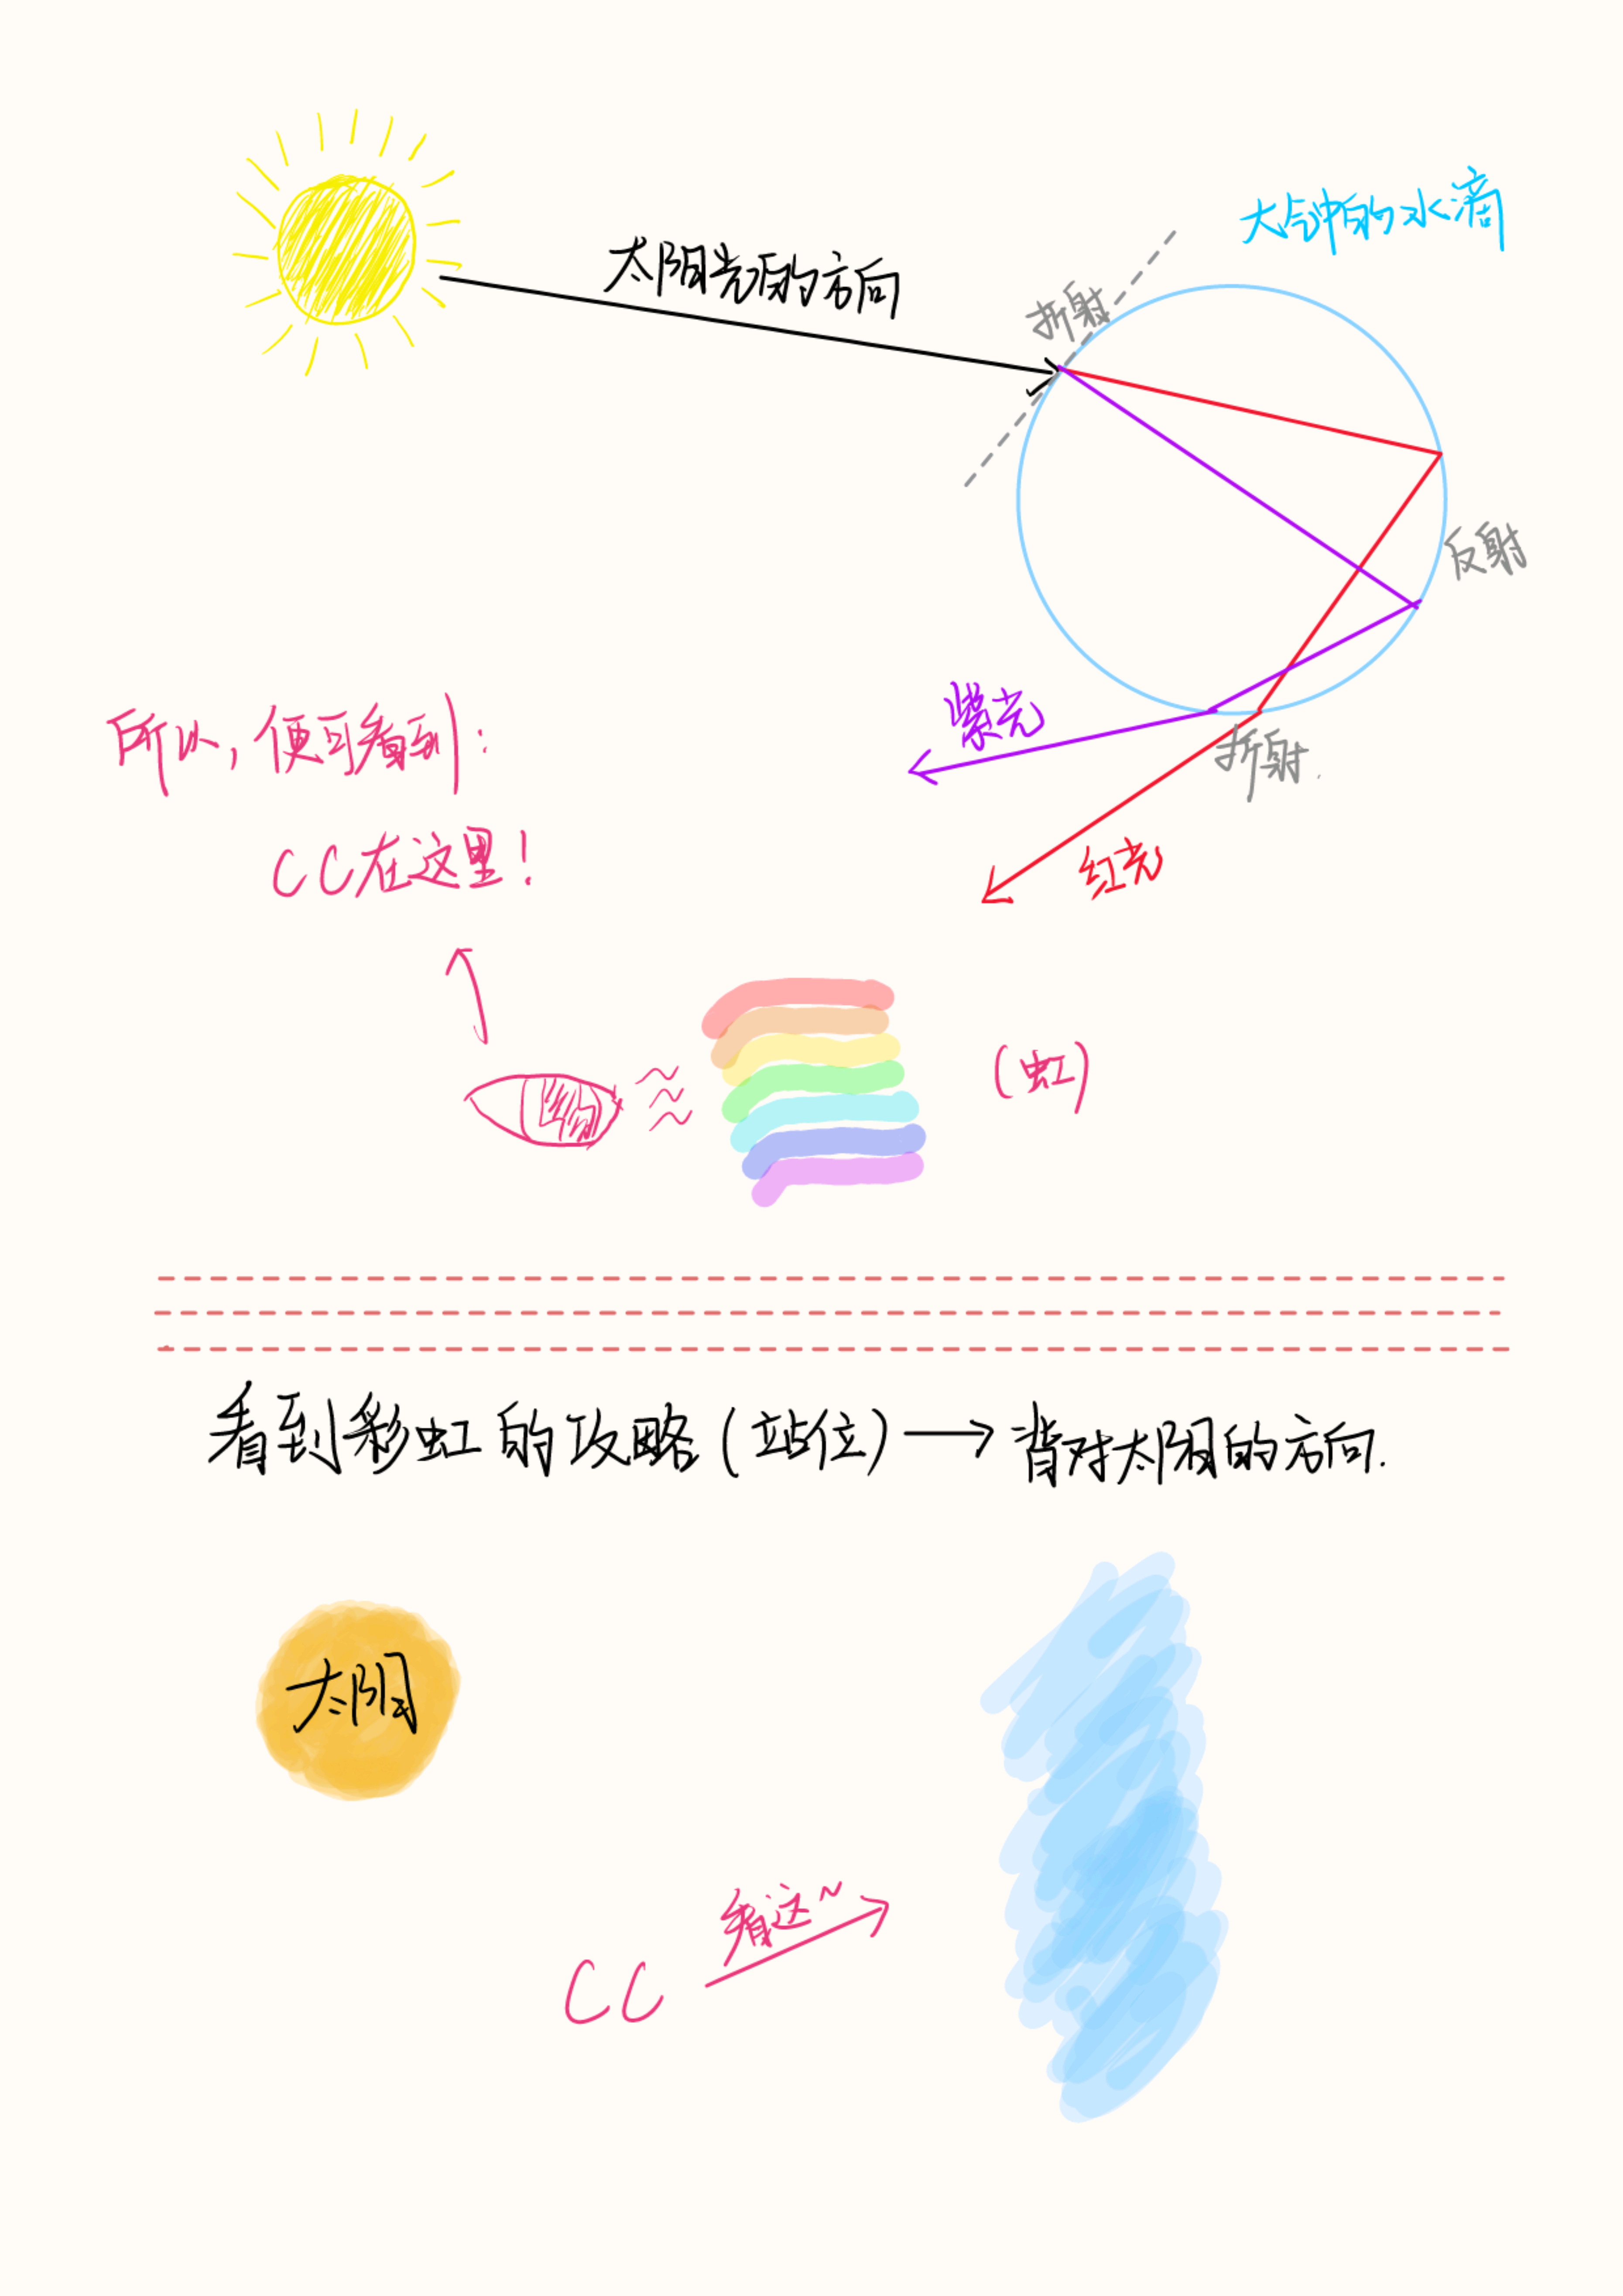 大气中的水滴
太阳光的方向
折射
反射
紫光
折射.
所以,便可看到:
红光
CC在这里!
(虹)
看到彩虹的攻略(站位)→背对太阳的方向.
太阳
看这~
CC